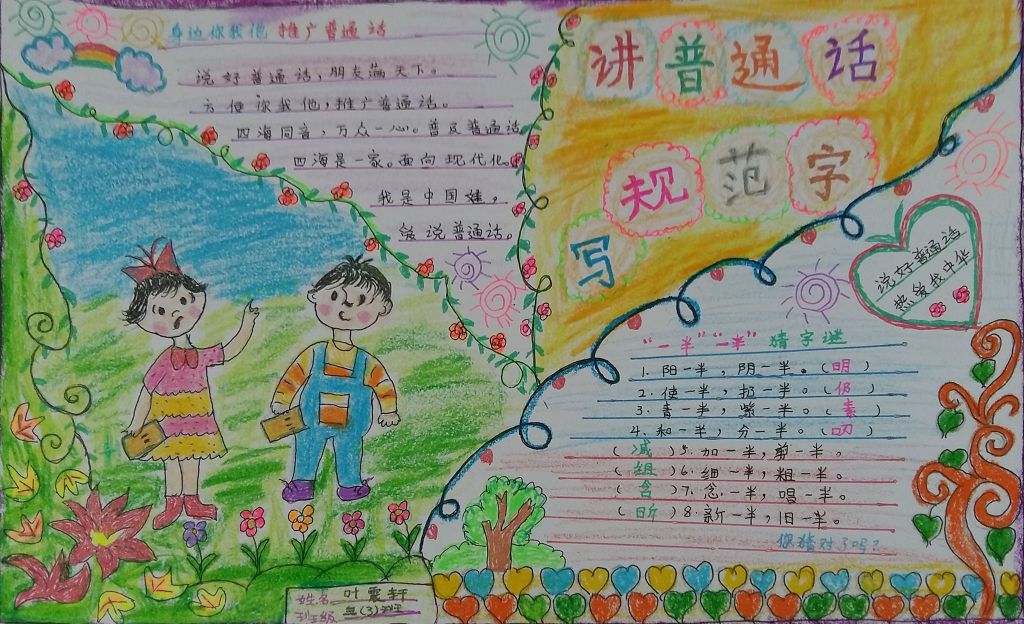 身边你我他 推广普通话
说好普通话，朋友满天下。
方便你我他，推广普通话。
四海同音，万众一心。普及普通话
四海是一家。面向现代化。
我是中国娃，
爱说普通话。
讲普通话
写规范字
说好普通话
热爱我中华
“一半”“一半”猜字谜
1. 阳一半，阴一半。（明）
2. 使一半，扔一半。（仍）
3. 青一半，紫一半。（素）
4. 和一半，分一半。（叨）
（减）5. 加一半，剪一半。
（组）6. 细一半，粗一半。
（含）7. 念一半，唱一半。
（昕）8. 新一半，旧一半。
你猜对了吗？
姓名 叶震轩
班级 (3)班